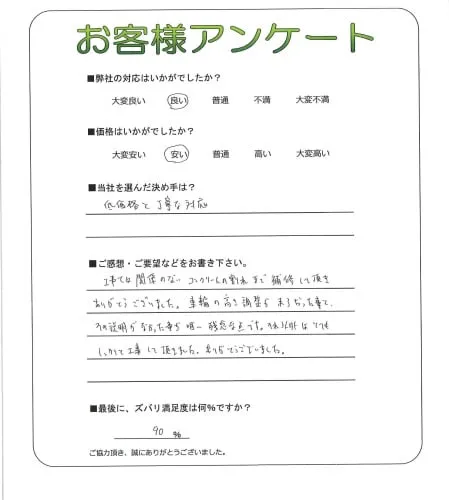 お客様アンケート
■弊社の対応はいかがでしたか？
大変良い 良い 普通 不満 大変不満
■価格はいかがでしたか？
大変安い 安い 普通 高い 大変高い
■当社を選んだ決め手は？
低価格と丁寧な対応
■ご感想・ご要望などをお書き下さい。
工事とは関係のない コンクリートの割れまで補修して頂き
ありがとうございました。車輪の高さ調整が 出来なかった事と、
その説明がなかった事が唯一残念な点です。それ以外はとても
しっかりと工事して頂きました。ありがとうございました。
■最後に、ズバリ満足度は何%ですか？
90 %
ご協力頂き、誠にありがとうございました。